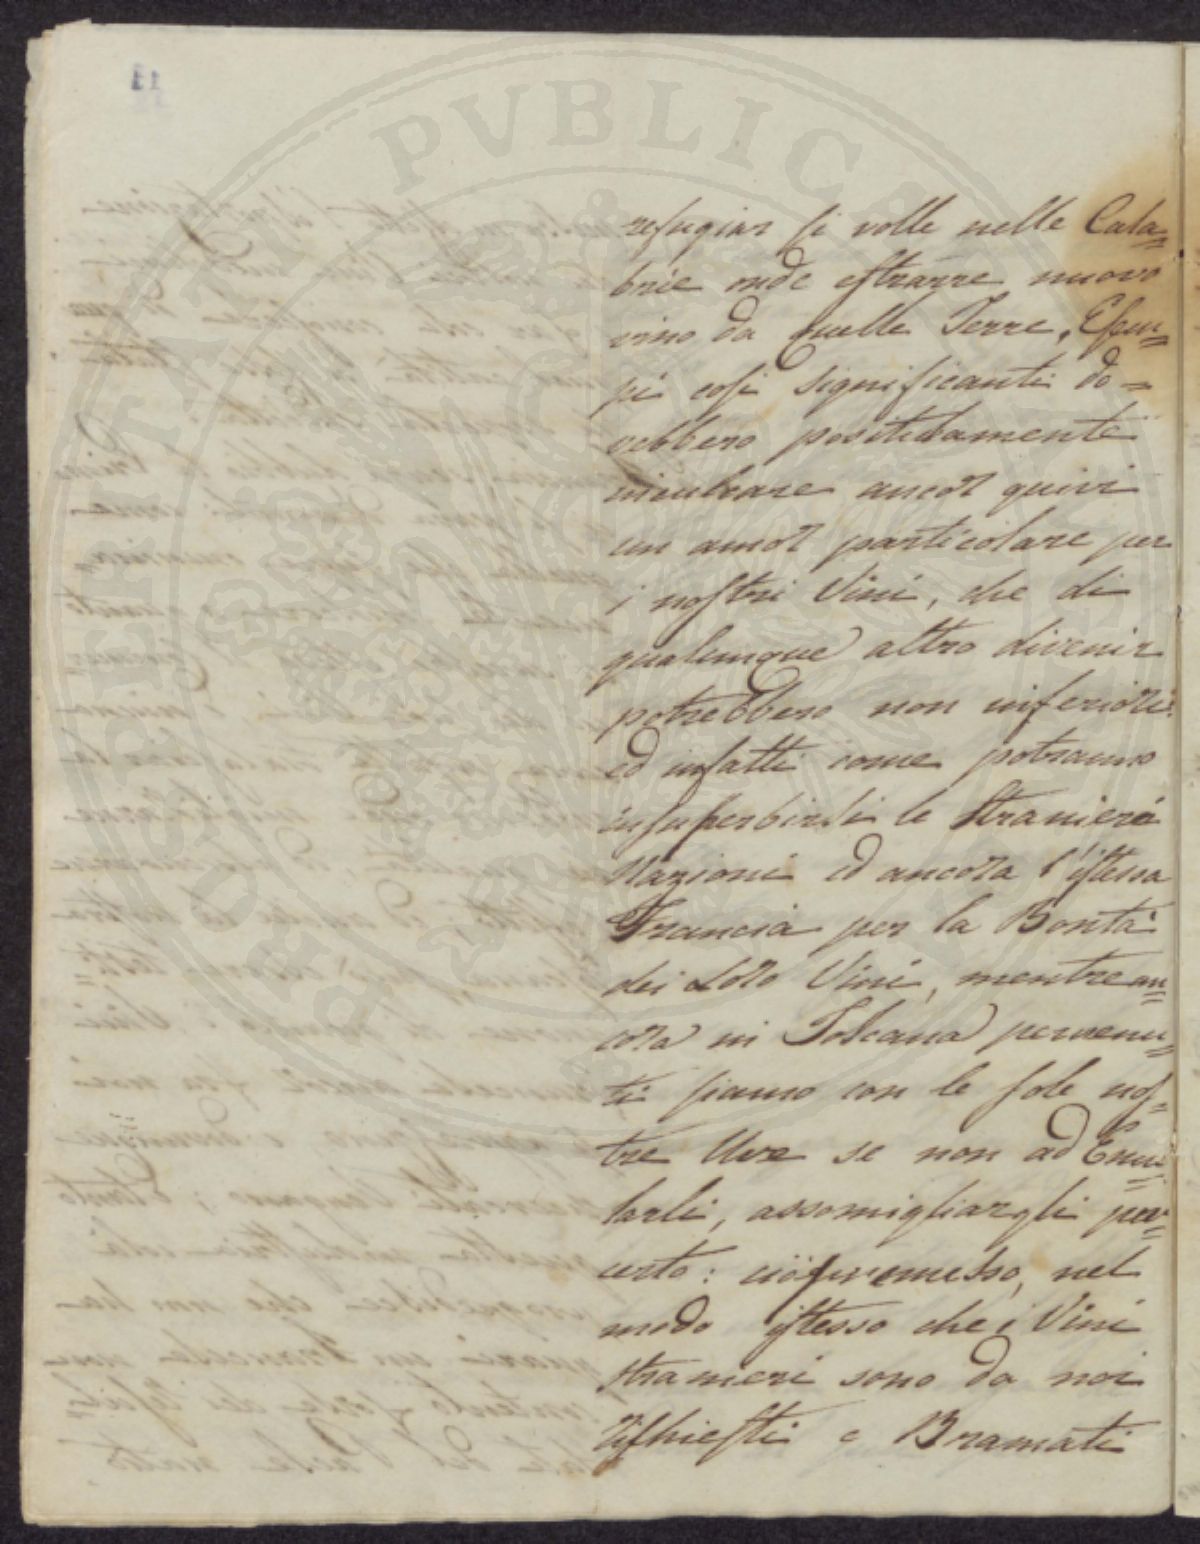 11
refugiar si volle nelle Cala=
brie onde estrarre nuovo
vino da quelle Terre. Esem=
pi così significanti do=
vebbero positivamente
inculcare ancor quivi
un amor particolare per
i nostri Vini, che di
qualunque altro divenir
potrebbero non inferiori:
ed infatti come potranno
insuperbirsi le straniere
Nazioni ed ancora l'istessa
Francia per la Bontà
dei Loro Vini, mentre an=
cora in Toscana pervenu=
ti siamo con le sole nos=
tre Uve se non ad Emu=
larli, assomigliargli per
certo: ciò premesso, nel
modo istesso che i Vini
stranieri sono da noi
richiesti e Bramati
PROSPERITATI PVBLICAE